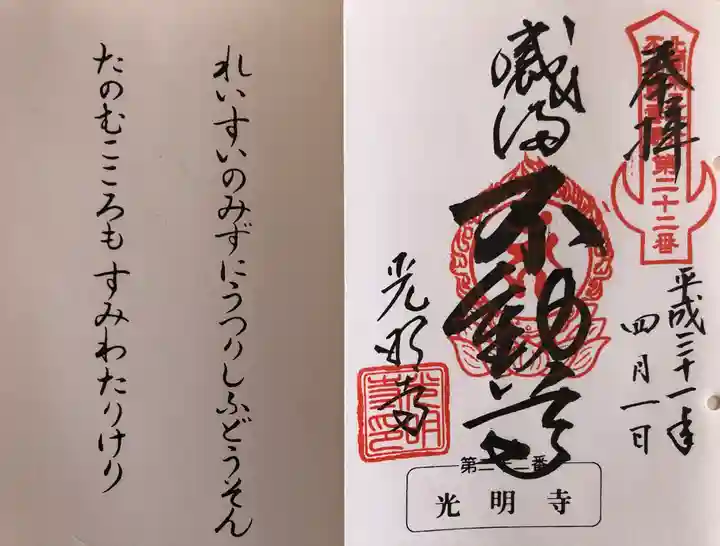 奉拝
第二十二番
平成三十一年
四月一日
厳満
不動尊
光明寺
第二十二番
光明寺
れいすいのみずにうつりしふどうそん
たのむこころもすみわたりけり